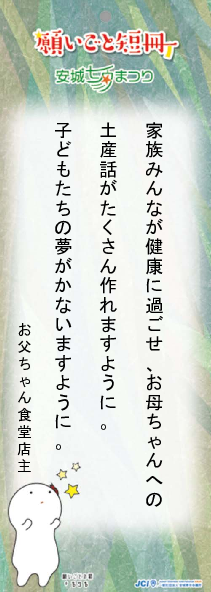 願いごと短冊
安城七夕まつり
家族みんなが健康に過ごせ、お母ちゃんへの
土産話がたくさん作れますように。
子どもたちの夢がかないますように。
お父ちゃん食堂店主
JCI